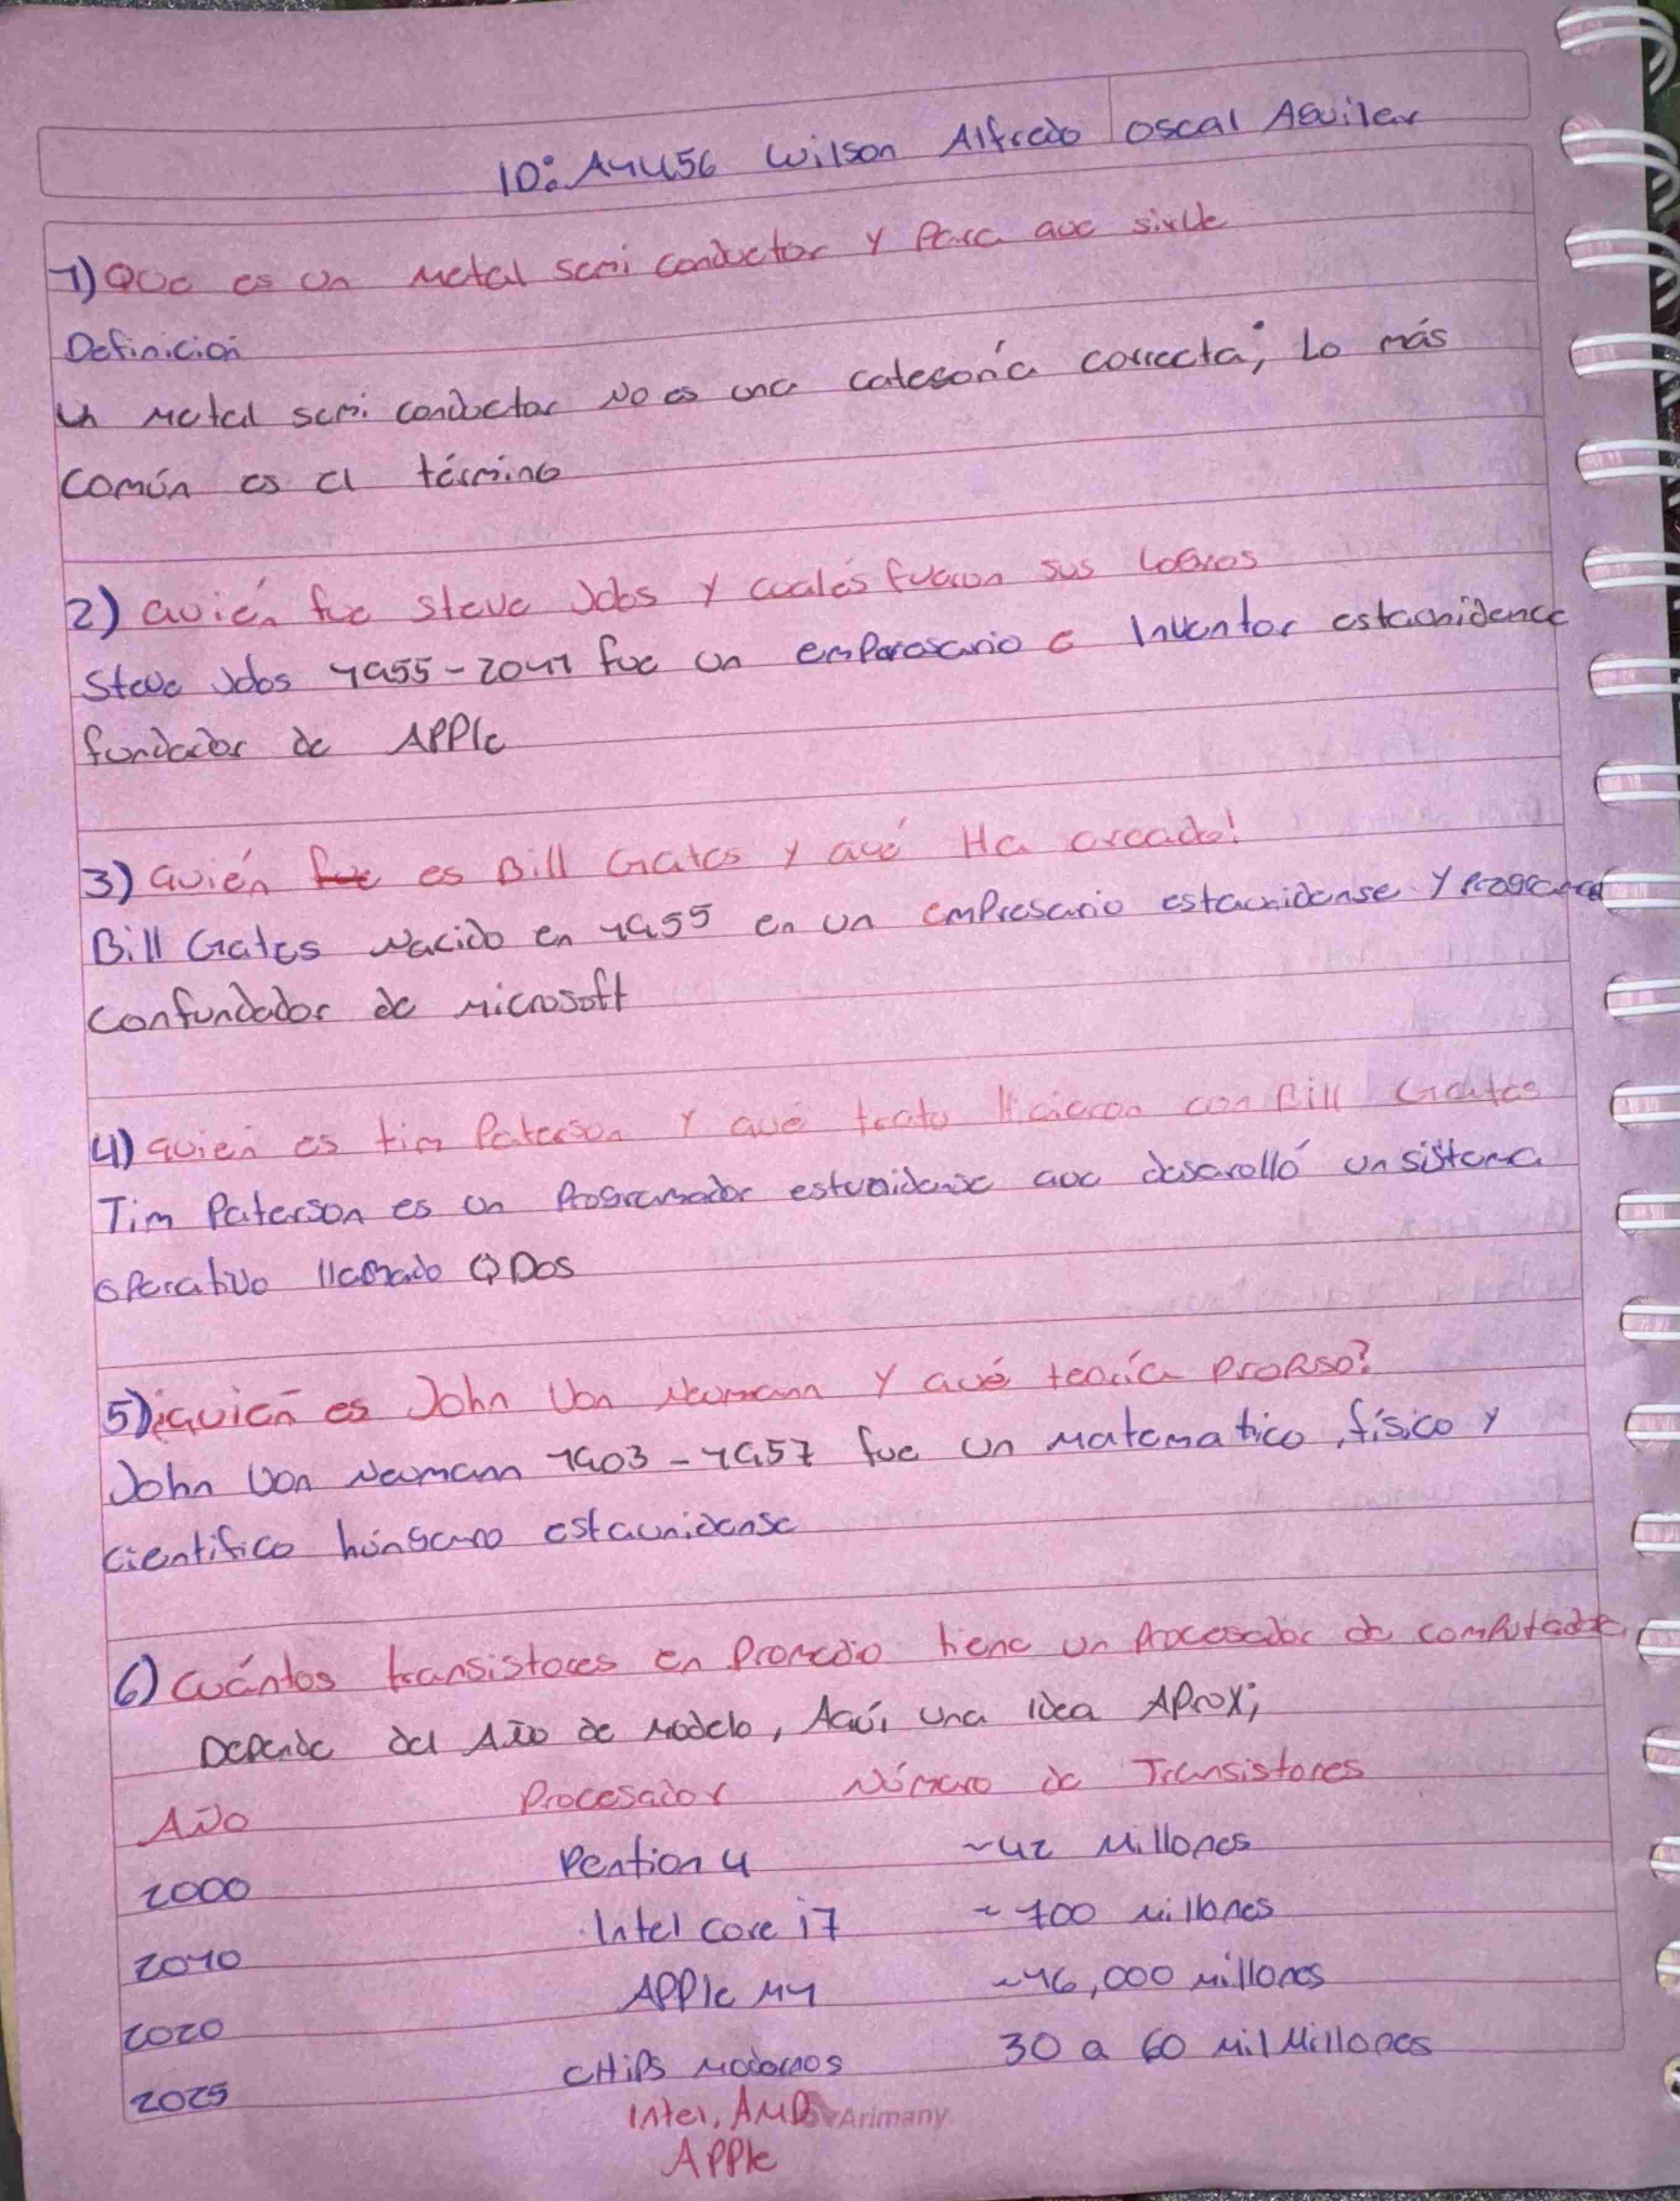 ID: A41456 Wilson Alfredo Oscal Aguilar
1) Que es un Metal semi conductor y Para que sirve
Definición
Un Metal semi conductor No es una categoría correcta; Lo más
común es el término
2) quién fue Steve Jobs y cuales fueron sus Logros
Steve Jobs 1955-2011 fue un emparesario e Inventor estaonidence
fundador de APPle
3) quién fue es Bill Gates y qué Ha creado!
Bill Gates Nacido en 1955 en un emPresario estaunidense y Programad
Confundador de Microsoft
4) quien es tim Paterson Y qué trato Hicieron con Bill Gates
Tim Paterson es un Programador estunidense que desarolló un sistema
operativo llamado QDos
5) ¿quien es John Von Neumann Y qué teoría Propuso?
John Von Neumann 1903-1957 fue un Matematico, físico y
científico húngaro estaunidense
6) Cuántos transistores en Promedio tiene un Procesador de computadora
Depende del Año de Modelo, Aquí una idea AProx;
Año Procesador Número de Transistores
2000 Pention 4 ~42 Millones
2010 Intel core i7 ~700 Millones
2020 APPle M1 ~16,000 Millones
2025 CHiPs Modernos 30 a 60 Mil Millones
Inter, AMD Arimany
APPle